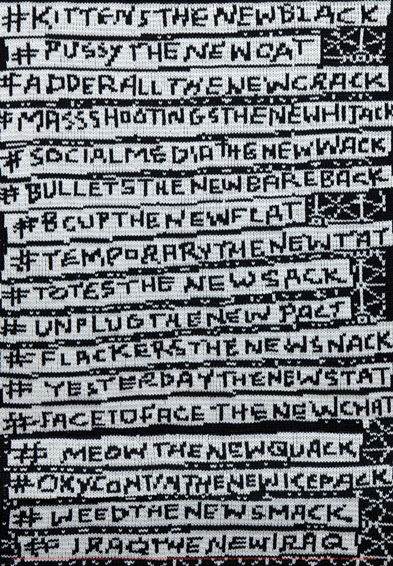 #KITTENSTHENEWBLACK
#PUSSYTHENEWCAT
#ADDERALLTHENEWCRACK
#MASSSHOOTINGSTHENEWHIJACK
#SOCIALMEDIATHENEWWACK
#BULLETSTHENEWBAREBACK
#BCUPTHENEWFLAT
#TEMPORARYTHENEWTAT
#TOTESTHENEWSACK
#UNPLUGTHENEW PACT
#FLACKERSTHENEWSNACK
#YESTERDAYTHENEWSTAT
#FACETOFACETHENEWCHAT
#MEOWTHENEWQUACK
#OXYCONTINTHENEWICEPACK
#WEEDTHENEWSMACK
#IRAQTHENEWIRAQ